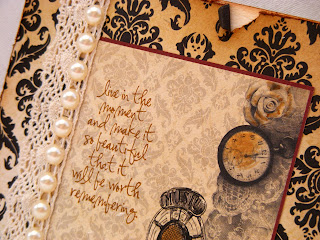 live in the
moment
and make it
so beautiful
that it
will be worth
remembering.